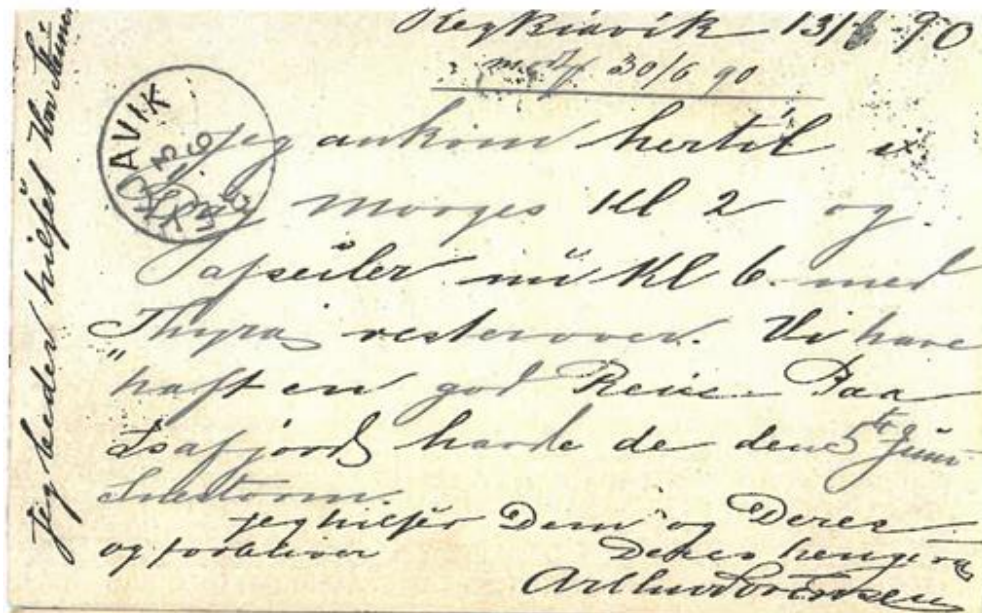 Reykiavik 13/6 90
30/6 90
Jeg ankom hertil i
Morges Kl 2 og
afseiler nu Kl 6 med
"Thyra" vesterover. Vi have
haft en god Reise. Paa
Isafjord havde de den 5te Juni
Snestorm.
Jeg hilser Dem og Deres
og forbliver Deres hengivne
Arthur
Jeg beder hilset
AVIK